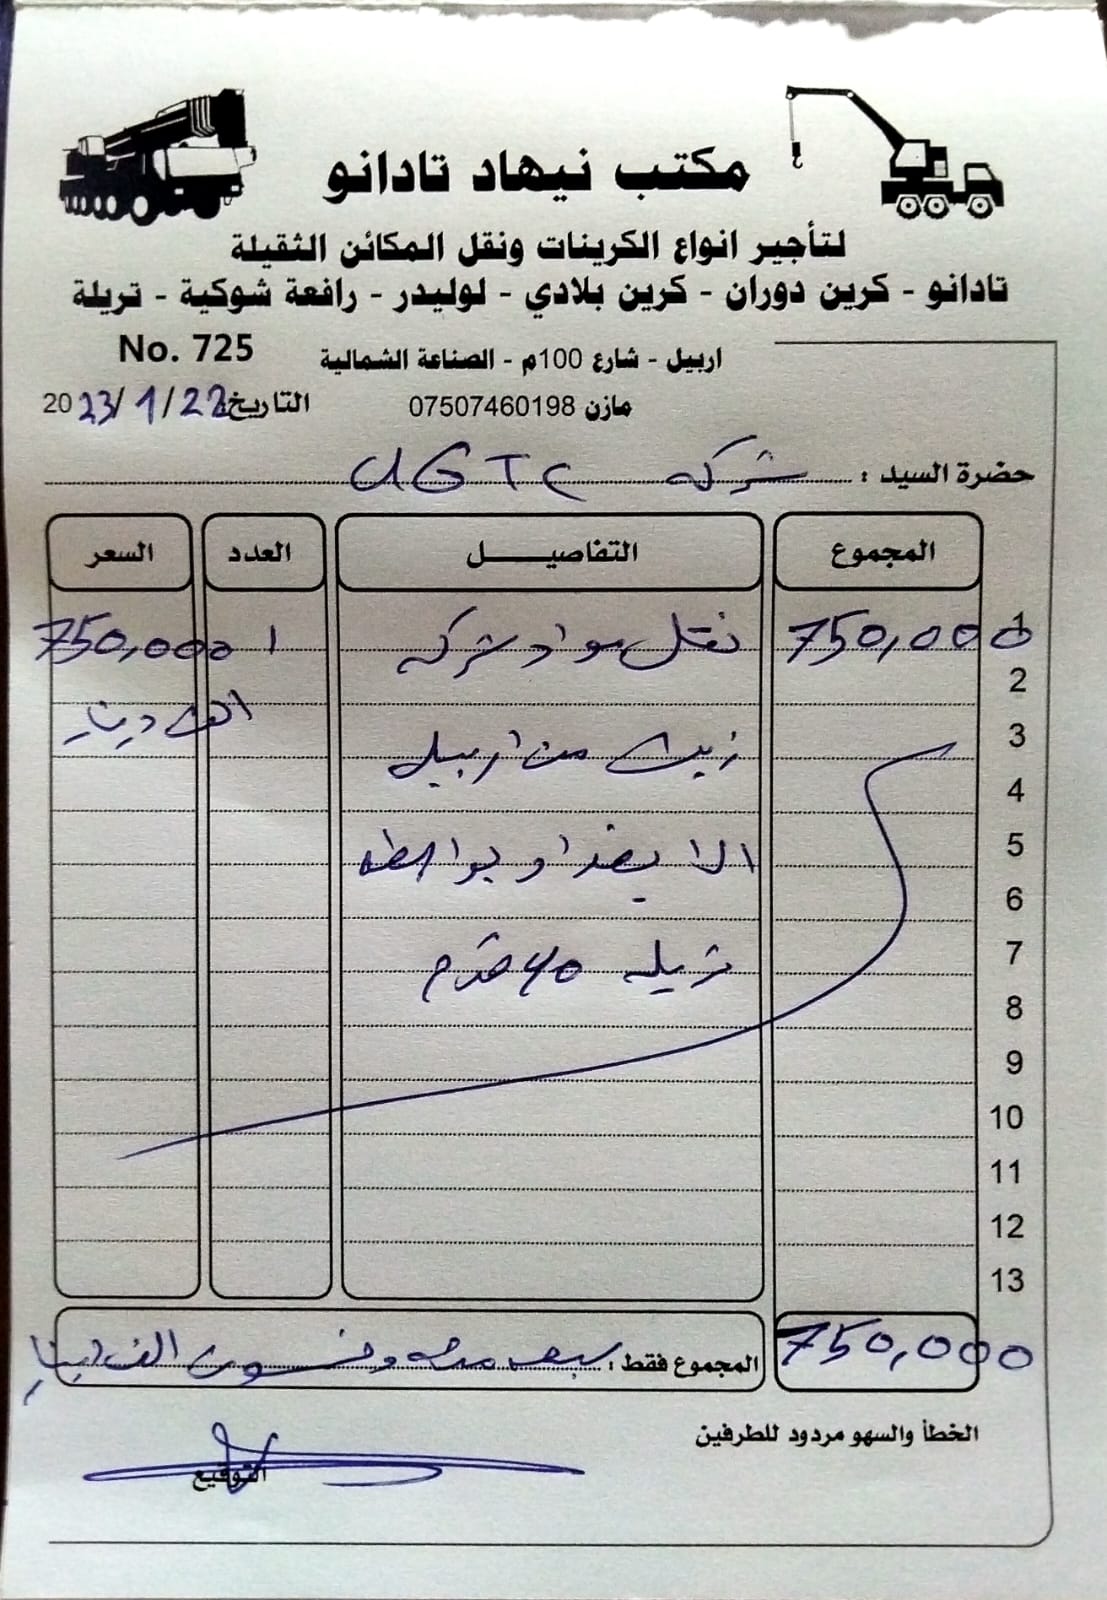 مكتب نيهاد تادانو
لتأجير انواع الكرينات ونقل المكائن الثقيلة
تادانو - كرين دوران - كرين بلادي - لوليدر - رافعة شوكية - تريلة
No. 725
اربيل - شارع 100م - الصناعة الشمالية
التاريخ: 2023/1/22
مازن 07507460198
حضرة السيد : شركه UGTC
المجموع التفاصيـــــل العدد السعر
1 750,000 نقل مواد شركه 1 750,000
2 الف دينار
3 زيت من اربيل
4
5 الا بغداد و بواسطه
6
7 تريله 40 قدم
8
9
10
11
12
13
750,000 المجموع فقط : سبعه مئه وخمسون الف دينار
الخطأ والسهو مردود للطرفين
التوقيع